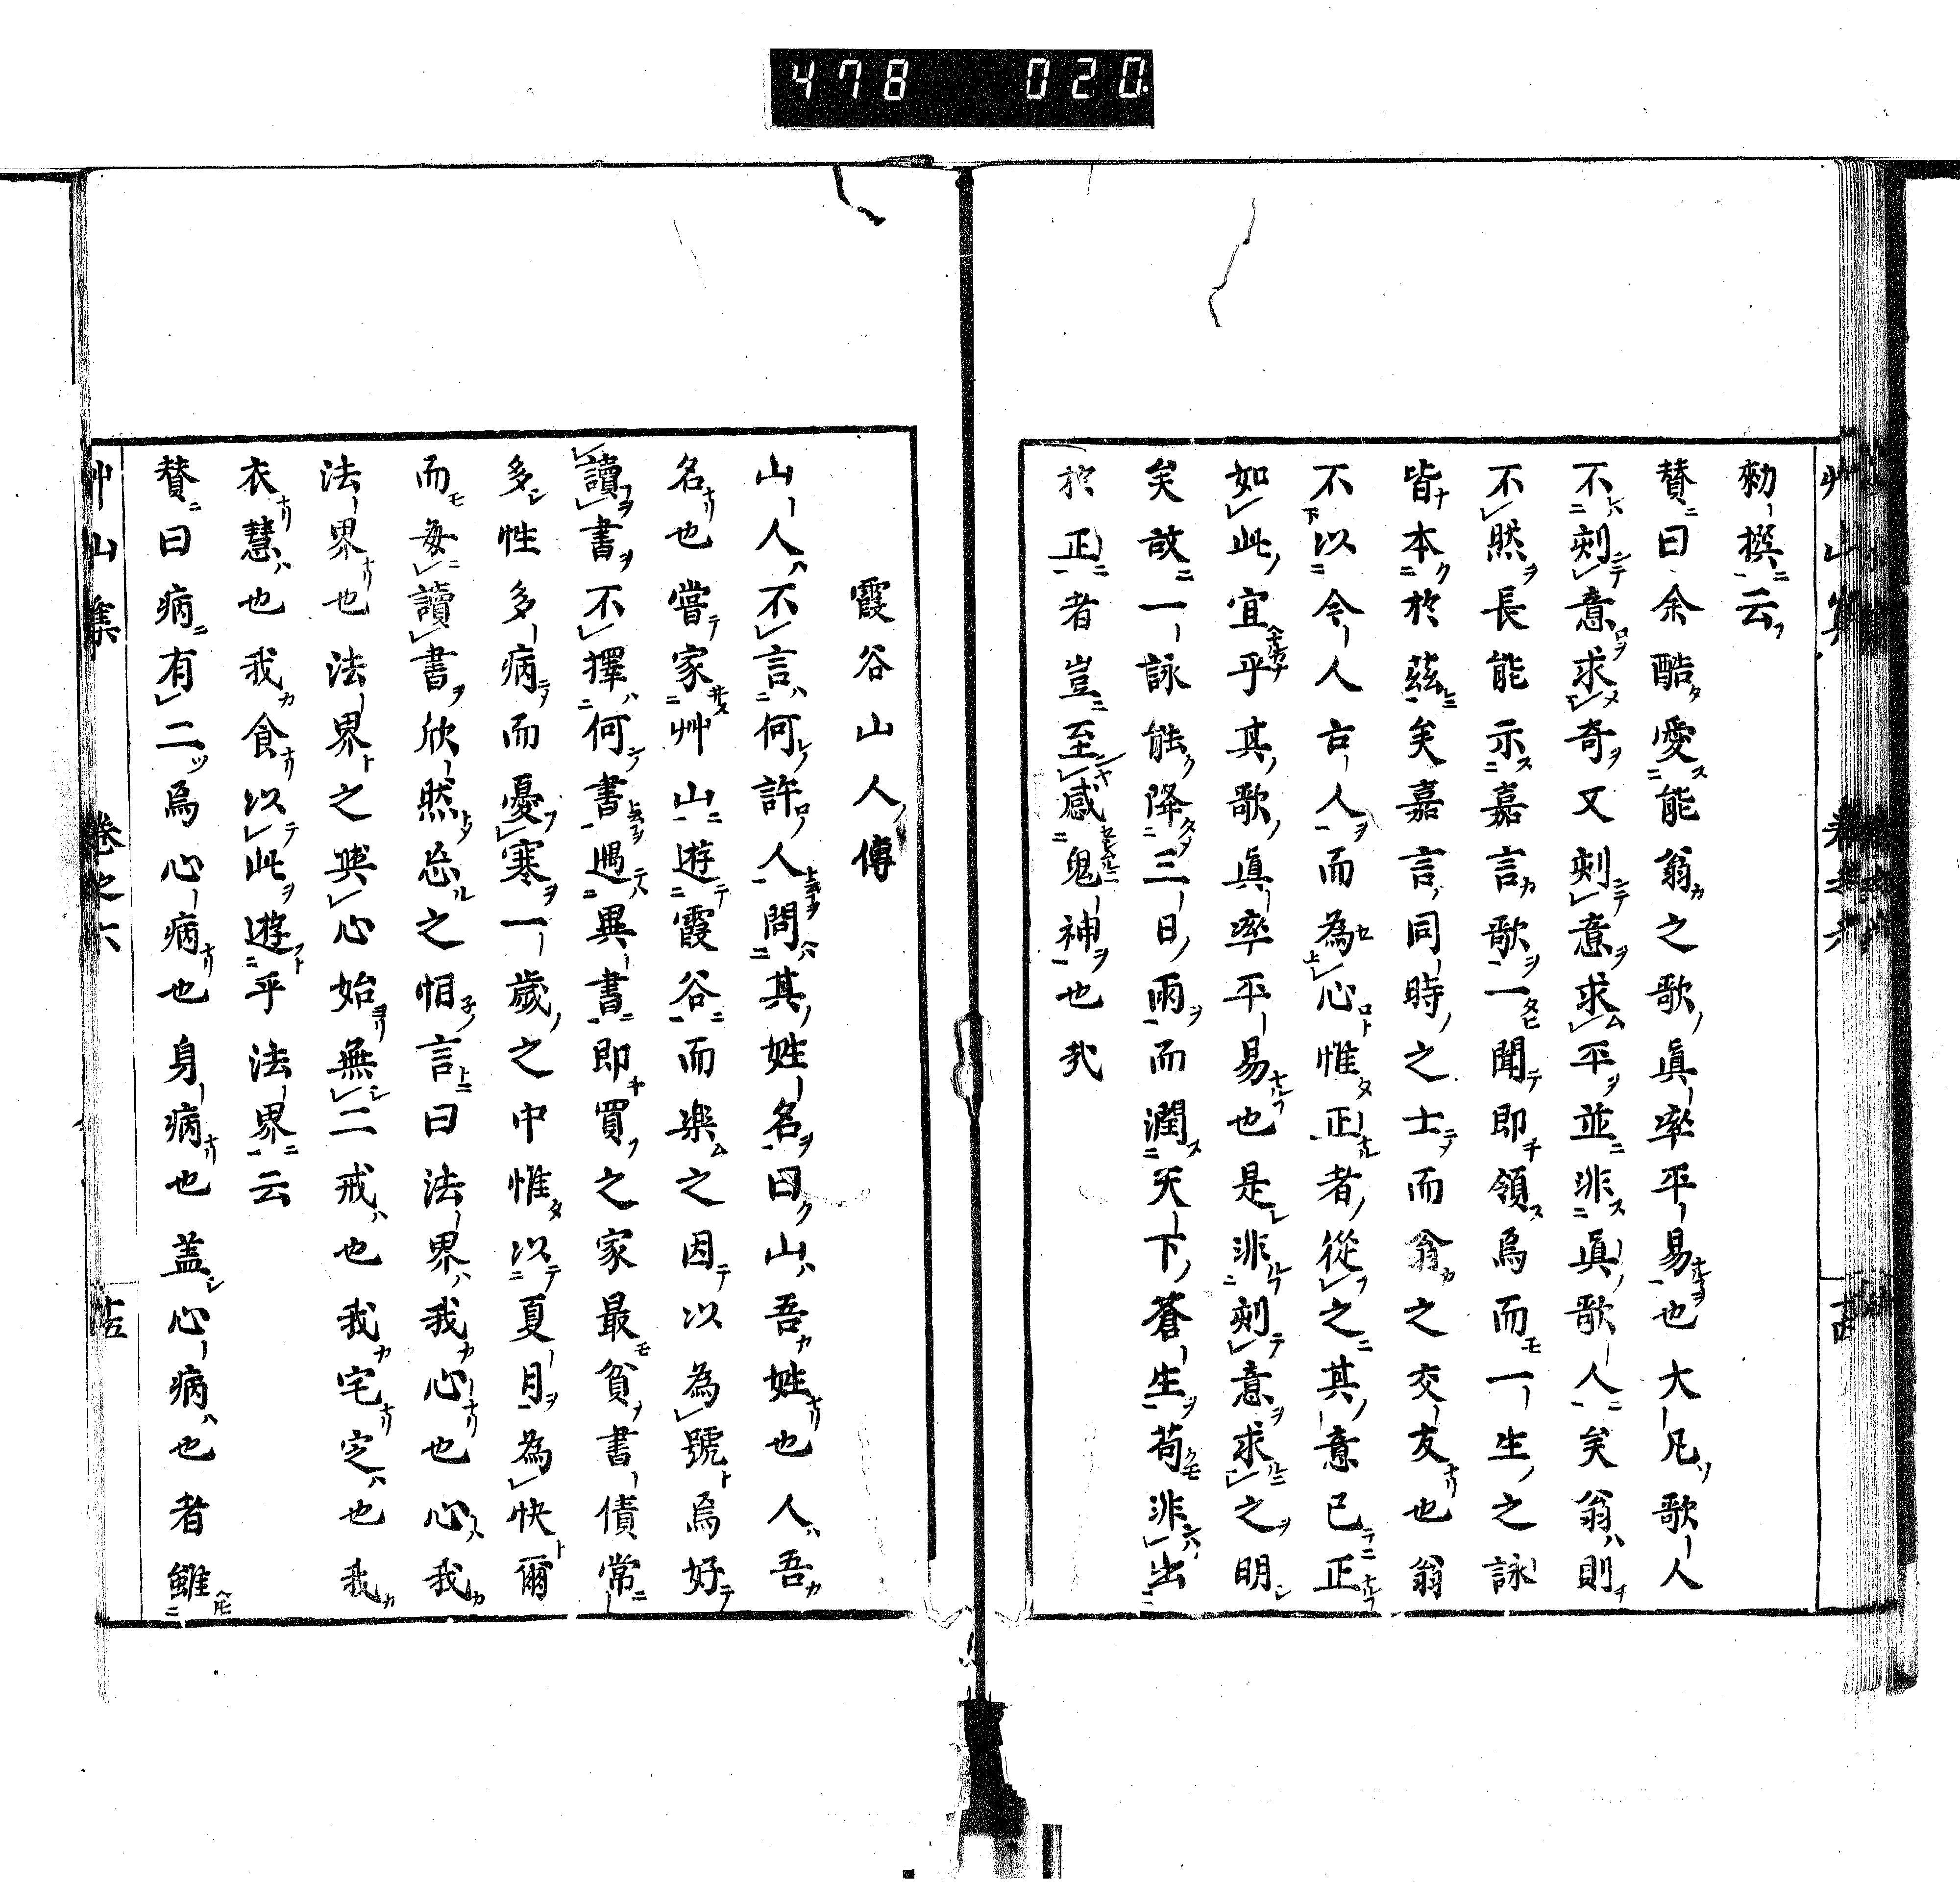 478 020
勑撰云
賛曰余酷愛能翁之歌眞率平易也大凡歌人
不刻意求奇又刻意求平並非眞歌人矣翁則
不然長能示嘉言歌一聞即領焉而一生之詠
皆本於茲矣嘉言同時之士而翁之交友也翁
不以今人古人而為心惟正者從之其意已正
如此宜乎其歌眞率平易也是非刻意求之明
矣故一詠能降三日雨而潤天下蒼生苟非出
於正者豈至感鬼神也哉
霞谷山人傳
山人不言何許人問其姓名曰山吾姓也人吾
名也嘗家艸山遊霞谷而樂之因以為號焉好
讀書不擇何書遇異書即買之家最貧書債常
多性多病而憂寒一歲之中惟以夏月為快爾
而每讀書欣然忘之怕言曰法界我心也心我
法界也法界之與心始無二戒也我宅定也我
衣慧也我食以此遊乎法界云
賛曰病有二焉心病也身病也盖心病也者雖
艸山集 卷之六 十五